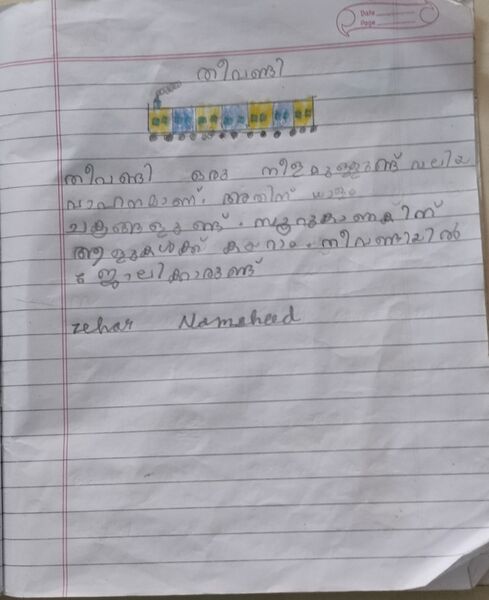 Date
Page
തീവണ്ടി
തീവണ്ടി ഒരു നീളമുള്ളുണ്ട് വലിയ
വാഹനമാണ്. അതിന് ധാളം
ചക്രങ്ങളുണ്ട്. നൂറുകണക്കിന്
ആളുകൾക്ക് കയറാം. തീവണ്ടിയിൽ
ജോലിക്കാരുണ്ട്
zehar Namsheed